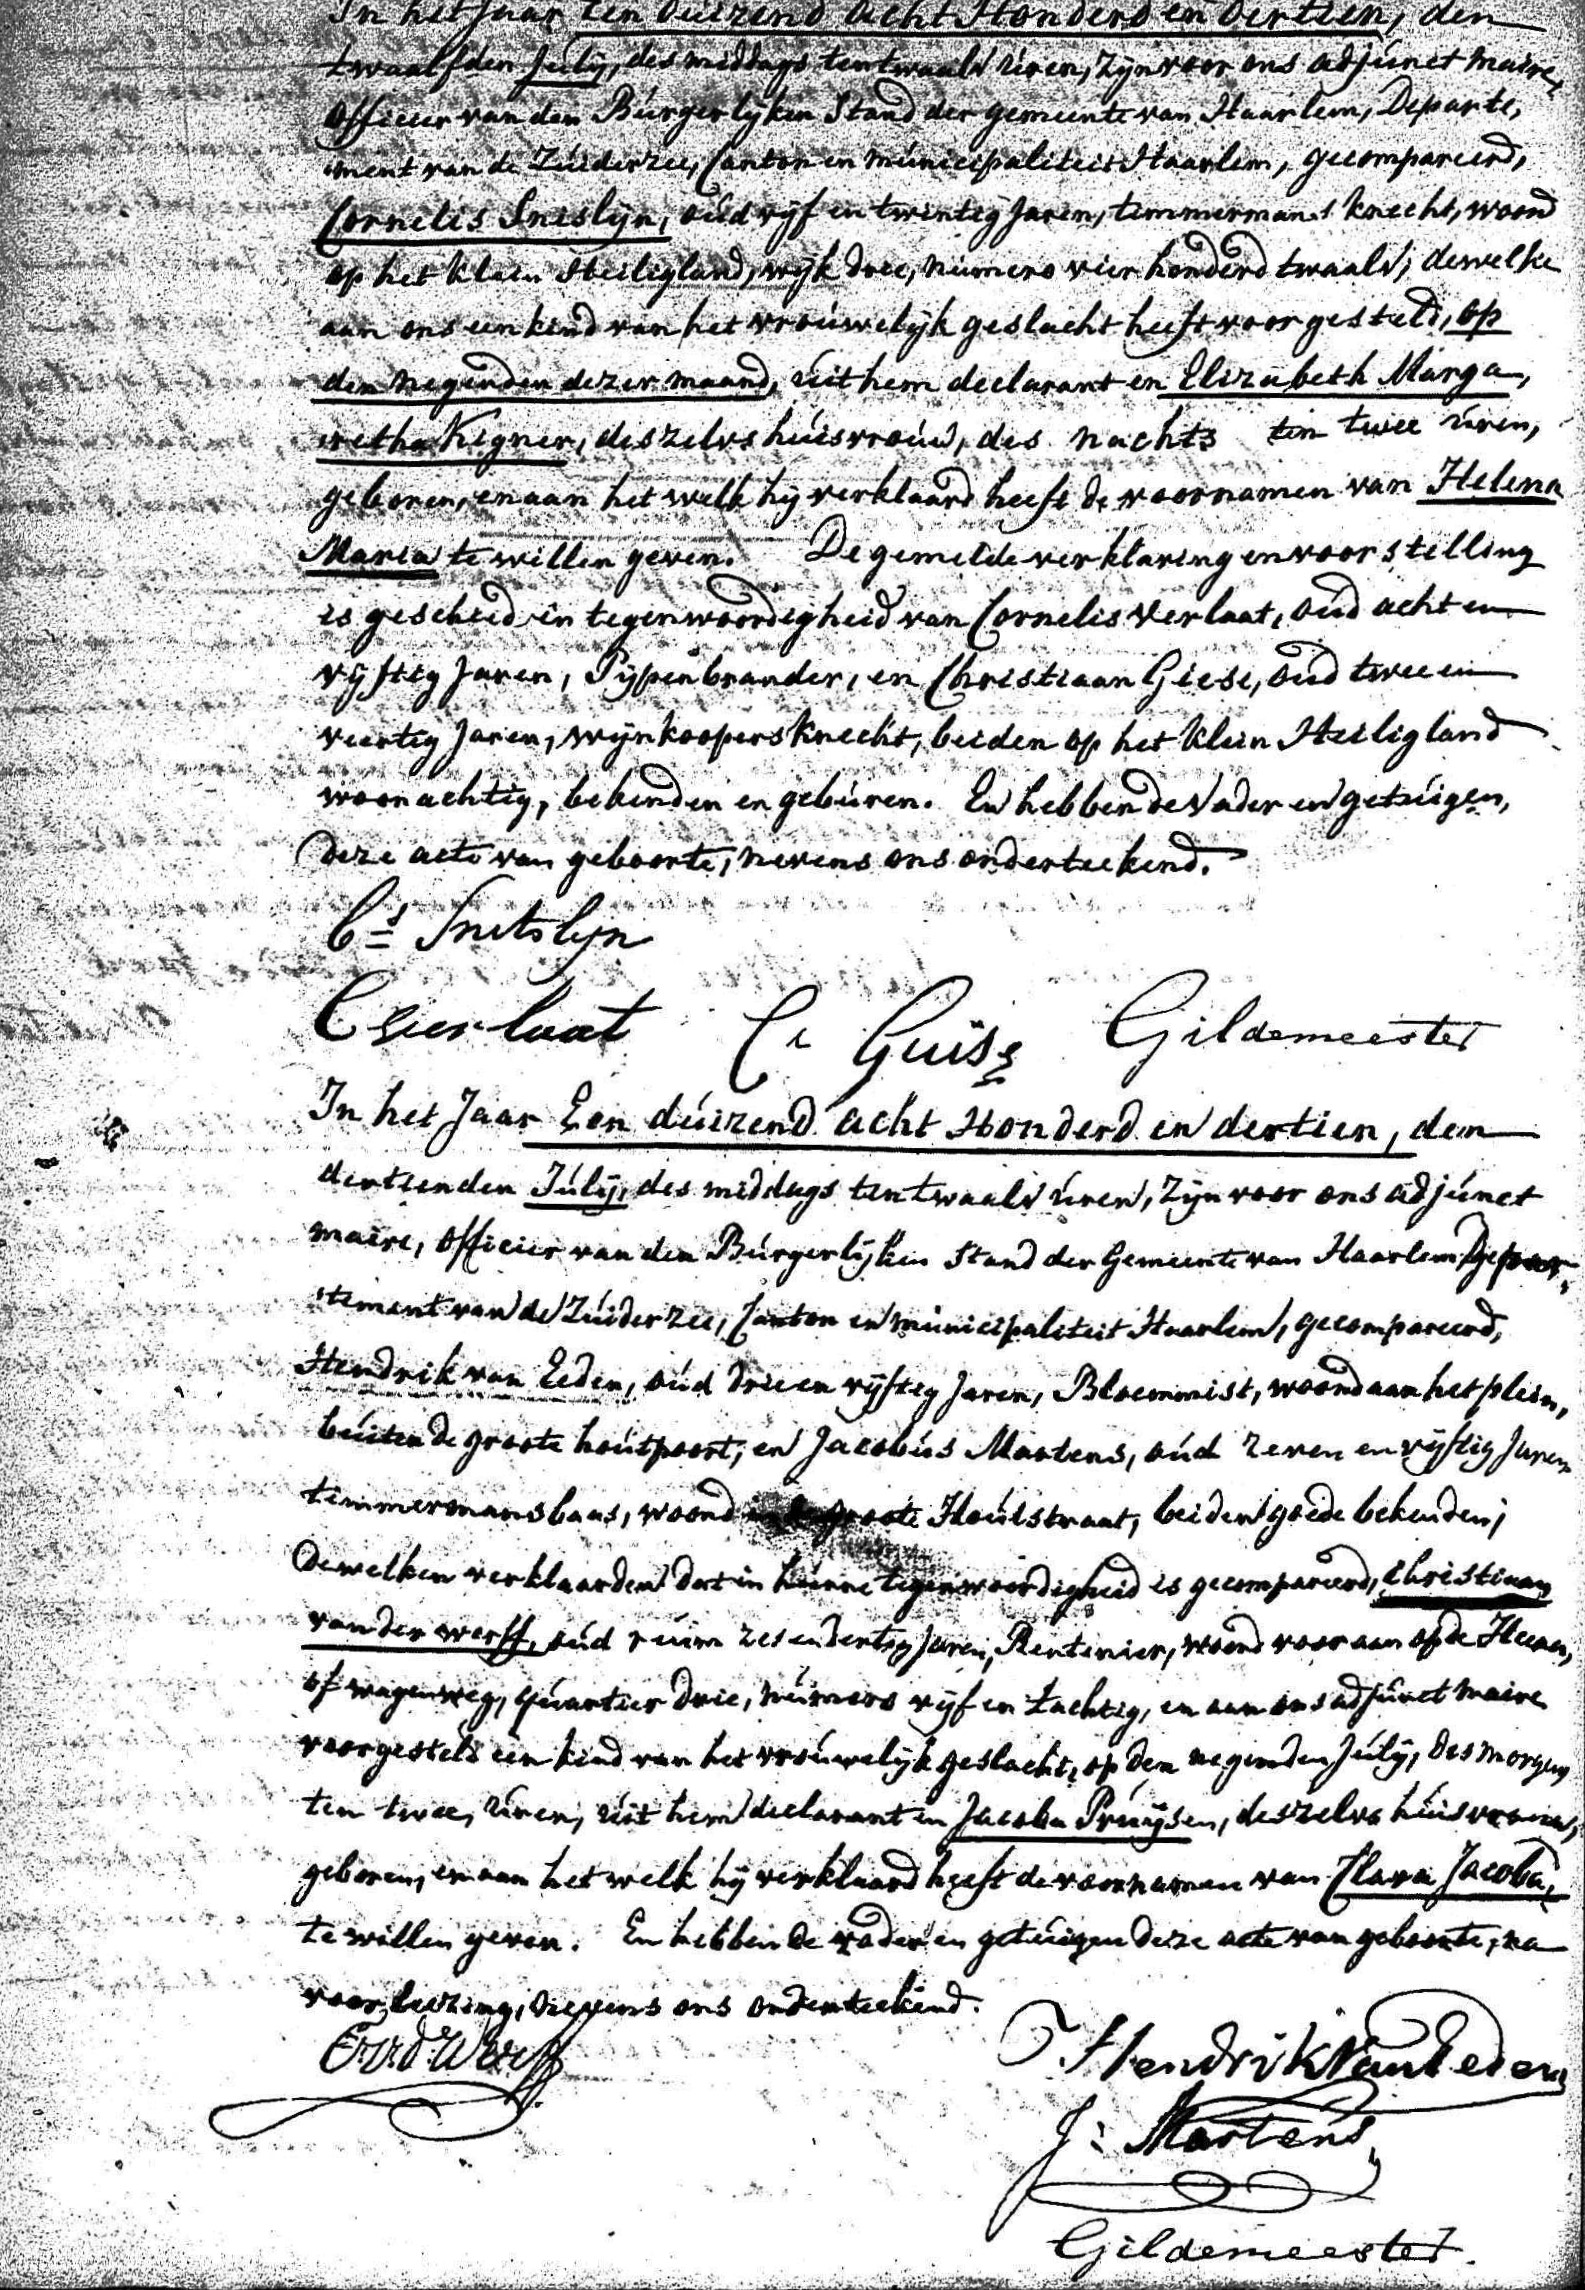 In het Jaar Een duizend acht Honderd en dertien, den
twaalfden July, des middags ten twaalv uren, zyn voor ons adjunct maire,
officier van den Burgerlyken Stand der gemeente van Haarlem, Departe,
ment van de Zuiderzee, Canton en municipaliteit Haarlem, gecompareerd,
Cornelis Snislyn, oud vyf en twintig Jaren, timmermans knecht, woond
op het klein Heiligland, wyk drie, numero vier honderd twaalv; dewelke
aan ons een kind van het vrouwelyk geslacht heeft voorgesteld, op
den negenden dezer maand, uit hem declarant en Elizabeth Marga,
retha Kegner, deszelvs huisvrouw, des nachts ten twee uren,
geboren, en aan het welk hy verklaard heeft de voornamen van Helena
Maria te willen geven. De gemelde verklaring en voorstelling
is geschied in tegenwoordigheid van Cornelis Verlaat, oud acht en
vyftig Jaren, Pypenbrander, en Christiaan Giese, oud twee en
veertig Jaren, wynkoopersknecht, beiden op het klein Heiligland
woonachtig, bekenden en geburen. En hebben de Vader en getuigen,
deze acte van geboorte, nevens ons onderteekend.
Cs Snitslyn
C verlaat C: Guise Gildemeester
In het Jaar Een duizend acht Honderd en dertien, den
dertienden July, des middags ten twaalv uren, zyn voor ons adjunct
maire, officier van den Burgerlyken Stand der Gemeente van Haarlem, Depar,
tement van de Zuiderzee, Canton en municipaliteit Haarlem, gecompareerd,
Hendrik van Eeden, oud drie en vyftig Jaren, Bloemmist, woond aan het plein,
buiten de groote houtpoort, en Jacobus Martens, oud zeven en vyftig Jaren
timmermansbaas, woond in de groote Houtstraat, beiden goede bekenden;
Dewelken verklaarden dat in hunne tegenwoordigheid is gecompareerd, Christiaan
van der werff, oud ruim zes en dertig Jaren, Rentenier, woond voor aan op de Heeren,
of wagenweg, quartier drie, numero vyf en tachtig, en aan ons adjunct maire
voorgesteld een kind van het vrouwelyk geslacht, op den negenden July, des morgens
ten twee, uren, uit hem declarant en Jacoba Pruysen, deszelvs huisvrouw,
geboren, en aan het welk hy verklaard heeft de voornamen van Clara Jacoba,
te willen geven. En hebben de vader en getuigen deze acte van geboorte, na
voorlezing, nevens ons onderteekend.
Cr. v. d. Werff Hendrik Van Eeden
J: Martens
Gildemeester